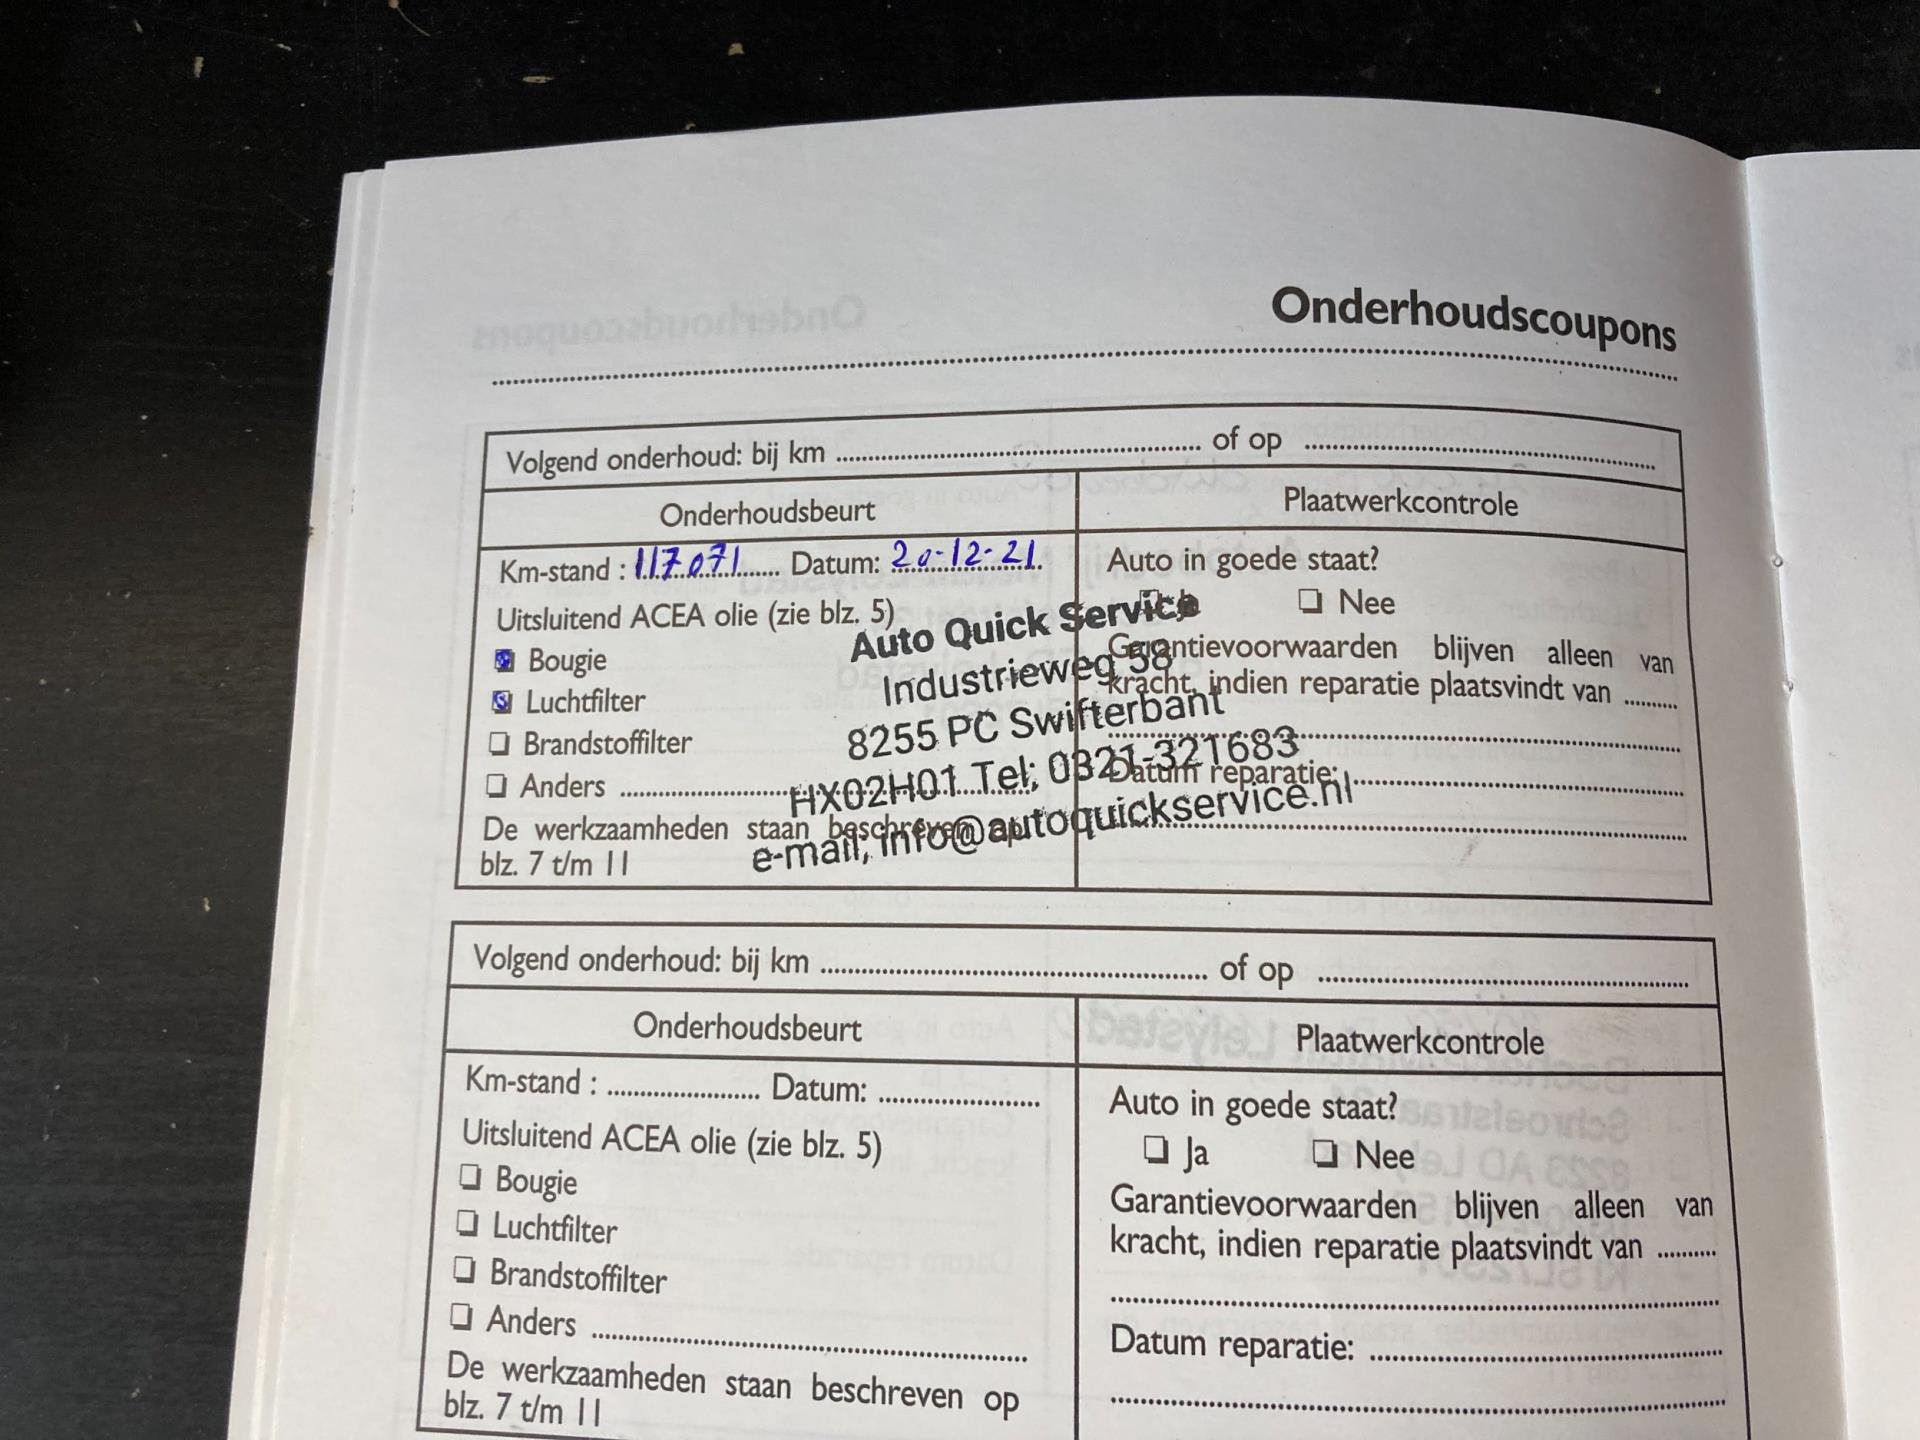 Onderhoudscoupons
Volgend onderhoud: bij km ........ of op ........
Onderhoudsbeurt
Plaatwerkcontrole
Km-stand : 117071 Datum: 20-12-21
Uitsluitend ACEA olie (zie blz. 5)
Bougie
Luchtfilter
Brandstoffilter
Anders ........
De werkzaamheden staan beschreven op
blz. 7 t/m 11
Auto in goede staat?
Nee
Garantievoorwaarden blijven alleen van
kracht, indien reparatie plaatsvindt van ........
Datum reparatie: ........
Auto Quick Service
Industrieweg 58
8255 PC Swifterbant
HX02H01 Tel; 0321-321683
e-mail; info@autoquickservice.nl
Volgend onderhoud: bij km ........ of op ........
Onderhoudsbeurt
Plaatwerkcontrole
Km-stand : ........ Datum: ........
Uitsluitend ACEA olie (zie blz. 5)
Bougie
Luchtfilter
Brandstoffilter
Anders ........
De werkzaamheden staan beschreven op
blz. 7 t/m 11
Auto in goede staat?
Ja Nee
Garantievoorwaarden blijven alleen van
kracht, indien reparatie plaatsvindt van ........
Datum reparatie: ........